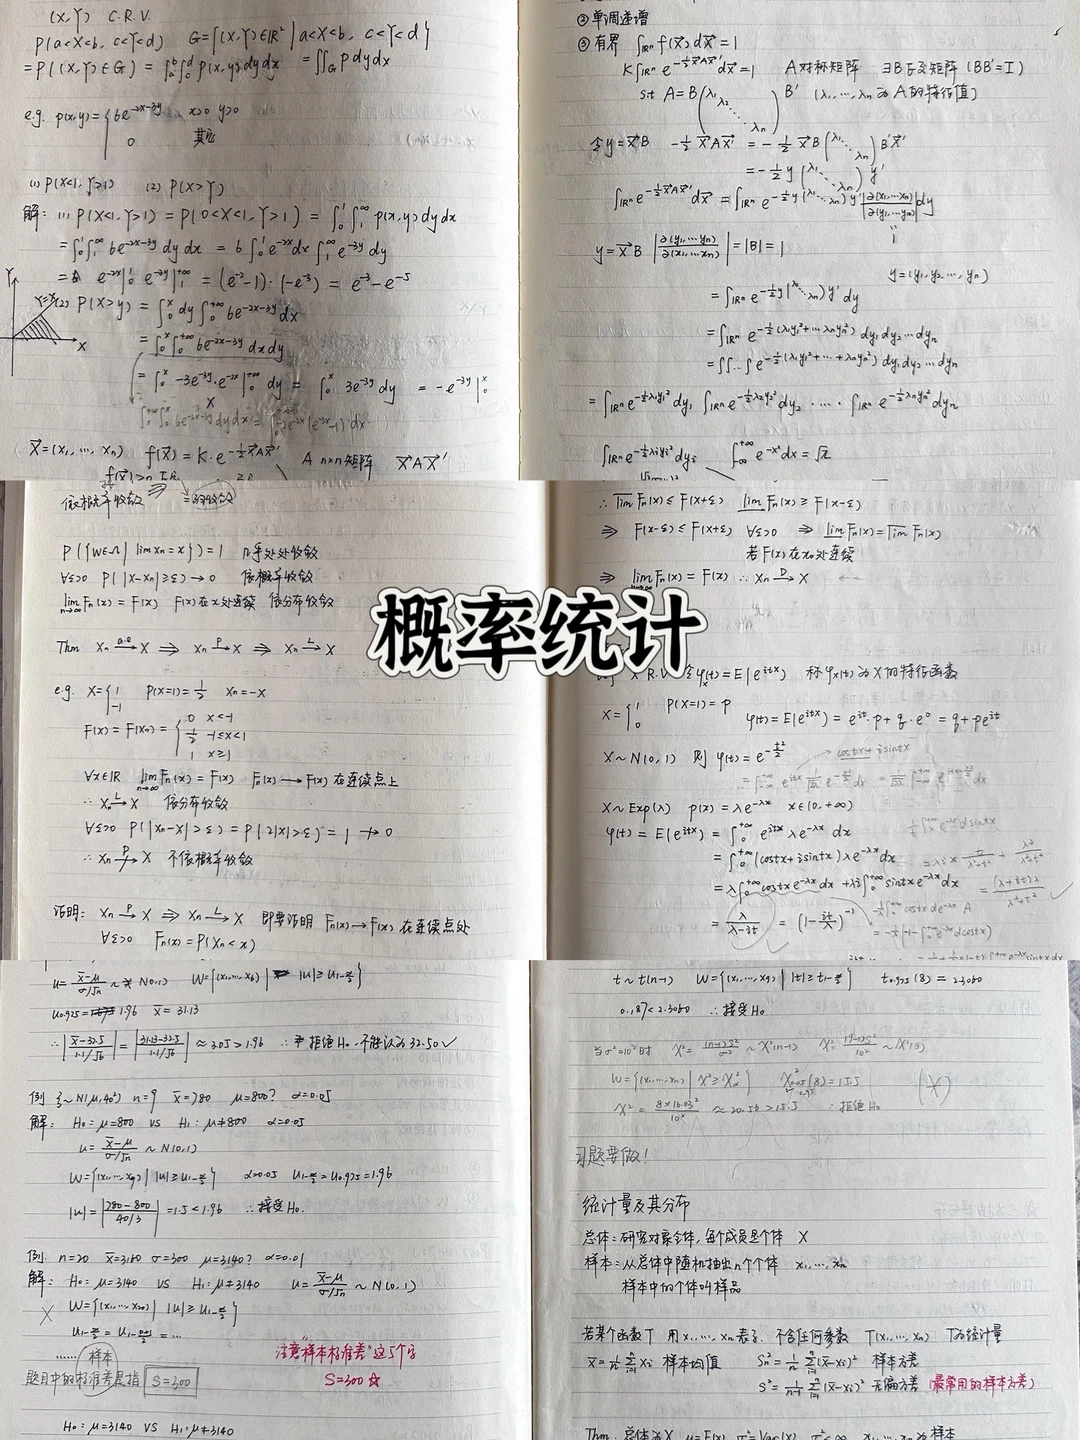 (X,Y) C.R.V.
P(a<X<b, c<Y<d) G={(X,Y)∈ℝ² | a<X<b, c<Y<d}
=P((X,Y)∈G) = ∫_a^b∫_c^d p(x,y)dydx = ∬_G p dydx
e.g. p(x,y)={6e^{-2x-3y} x>0 y>0
0 其它
(1) P(X<1, Y>1) (2) P(X>Y)
解: (1) P(X<1, Y>1) = P(0<X<1, Y>1) = ∫_0^1∫_1^∞ p(x,y)dydx
=∫_0^1∫_1^∞ 6e^{-2x-3y}dydx = 6∫_0^1 e^{-2x}dx∫_1^∞ e^{-3y}dy
= e^{-2x}|_0^1 e^{-3y}|_1^{+∞} = (e^{-2}-1)·(-e^{-3}) = e^{-3}-e^{-5}
(2) P(X>y) = ∫_0^x dy∫_0^{+∞} 6e^{-2x-3y}dx
=∫_0^x∫_0^{+∞} 6e^{-2x-3y}dxdy
=∫_0^x -3e^{-3y}·e^{-2x}|_0^{+∞} dy = ∫_0^x 3e^{-3y}dy = -e^{-3y}|_0^x
X⃗=(x₁,…,xₙ) f(X⃗)=K·e^{-½X⃗AX⃗'} A n×n矩阵 X⃗AX⃗'
②单调递增
③有界 ∫_{ℝⁿ} f(X⃗)dX⃗=1
K∫_{ℝⁿ} e^{-½X⃗AX⃗'}dX⃗=1 A对称矩阵 ∃B正交矩阵 (BB'=I)
s.t A=B(λ₁ λ₂ ⋱ λₙ)B' (λ₁,…,λₙ为A的特征值)
令y=X⃗B -½X⃗AX⃗' = -½X⃗B(λ₁⋱λₙ)B'X⃗'
=-½y(λ₁⋱λₙ)y'
∫_{ℝⁿ} e^{-½X⃗AX⃗'}dX⃗=∫_{ℝⁿ} e^{-½y(λ₁⋱λₙ)y'}|∂(x₁,…xₙ)/∂(y₁,…yₙ)|dy
y=X⃗B |∂(y₁,…yₙ)/∂(x₁,…xₙ)|=|B|=1
y=(y₁,y₂,…,yₙ)
=∫_{ℝⁿ} e^{-½y(λ₁⋱λₙ)y'}dy
=∫_{ℝⁿ} e^{-½(λ₁y₁²+…λₙyₙ²)}dy₁dy₂…dyₙ
=∬…∫e^{-½(λ₁y₁²+…+λₙyₙ²)}dy₁dy₂…dyₙ
=∫_{ℝⁿ}e^{-½λ₁y₁²}dy₁ ∫_{ℝⁿ}e^{-½λ₂y₂²}dy₂ …… ∫_{ℝⁿ}e^{-½λₙyₙ²}dyₙ
∫_{ℝⁿ}e^{-½λᵢyᵢ²}dyᵢ ∫_{-∞}^{+∞}e^{-x²}dx=√π
依概率收敛 ⇒
P({W∈Ω| lim xₙ=x})=1 几乎处处收敛
∀ε>0 P(|X-Xₙ|≥ε)→0 依概率收敛
lim_{n→∞}Fₙ(x)=F(x) F(x)在x处连续 依分布收敛
Thm Xₙ—a.e→X ⇒ Xₙ—P→X ⇒ Xₙ—L→X
e.g. X={1 -1 P(X=1)=½ Xₙ=-X
F(x)=F(Xₙ)={0 x<-1
½ -1≤x<1
1 x≥1
∀x∈ℝ lim_{n→∞}Fₙ(x)=F(x) Fₙ(x)→F(x)在连续点上
∴Xₙ—L→X 依分布收敛
∀ε>0 P(|Xₙ-X|>ε)=P(2|X|>ε)=1↛0
∴Xₙ—P↛X 不依概率收敛
证明: Xₙ—P→X ⇒ Xₙ—L→X 即要证明 Fₙ(x)→F(x)在连续点处
∀ε>0 Fₙ(x)=P(Xₙ<x)
∴ lim̅Fₙ(x)≤F(x+ε) lim̲Fₙ(x)≥F(x-ε)
⇒ F(x-ε)≤F(x+ε) ∀ε>0 ⇒ lim̲Fₙ(x)=lim̅Fₙ(x)
若F(x)在x₀处连续
⇒ lim_{n→∞}Fₙ(x)=F(x) ∴Xₙ—P→X
概率统计
X R.V 令φₓ(t)=E(e^{itx}) 称φₓ(t)为X的特征函数
X={1 0 P(X=1)=p φ(t)=E(e^{itx})=e^{it}·p+q·e⁰=q+pe^{it}
X~N(0,1) 则φ(t)=e^{-t²/2}
X~Exp(λ) p(x)=λe^{-λx} x∈(0,+∞)
φ(t)=E(e^{itx})=∫_0^{+∞}e^{itx}λe^{-λx}dx
=∫_0^{+∞}(costx+isintx)λe^{-λx}dx
=λ∫_0^{+∞}costxe^{-λx}dx+λi∫_0^{+∞}sintxe^{-λx}dx
=λ/(λ-it)=(1-it/λ)^{-1}
u=(x̄-μ)/(σ/√n)~N(0,1) W={(x₁,…,x₆)| |u|≥u_{1-α/2}}
u₀.₉₂₅=1.96 x̄=31.13
∴|(x̄-32.5)/(1.1/√6)|=|(31.13-32.5)/(1.1/√6)|≈3.05>1.96 ∴拒绝H₀.不能认为32.50✓
例 ξ~N(μ,40²) n=9 x̄=780 μ=800? α=0.05
解: H₀:μ=800 vs H₁:μ≠800 α=0.05
u=(x̄-μ)/(σ/√n)~N(0,1)
W={(x₁,…,x₉)| |u|≥u_{1-α/2}} α=0.05 u_{1-α/2}=u₀.₉₇₅=1.96
|u|=|(780-800)/(40/3)|=1.5<1.96 ∴接受H₀.
例: n=20 x̄=3160 σ=300 μ=3140? α=0.01
解: H₀:μ=3140 vs H₁:μ≠3140 u=(x̄-μ)/(σ/√n)~N(0,1)
W={(x₁,…,x₂₀)| |u|≥u_{1-α/2}}
样本
题目中的标准差是指 S=300
注意"样本标准差"这5个字
S=300☆
H₀:μ=3140 VS H₁:μ≠3140
t~t(n-1) W={(x₁,…,x₉)| |t|≥t_{1-α/2}} t₀.₉₇₅(8)=2.3060
0.187<2.3060 ∴接受H₀
当σ²=10²时 χ²=(n-1)S²/σ²~χ²(n-1) χ²=(9-1)S²/10²~χ²(8)
W={(x₁,…,xₙ)| χ²≥χ²_α} χ²₀.₀₅(8)=15.5
χ²=8×16.03²/10²≈20.56>15.5 ∴拒绝H₀
习题要做!
统计量及其分布
总体:研究对象全体,每个成员是个体 X
样本:从总体中随机抽出n个个体 x₁,…,xₙ
样本中的个体叫样品
若某个函数T 用x₁,…,xₙ表示 不含任何参数 T(x₁,…,xₙ) T为统计量
x̄=1/n Σ_{i=1}^n xᵢ 样本均值 Sₙ²=1/n Σ_{i=1}^n(x̄-xᵢ)² 样本方差
S²=1/(n-1) Σ_{i=1}^n(x̄-xᵢ)² 无偏方差(最常用的样本方差)